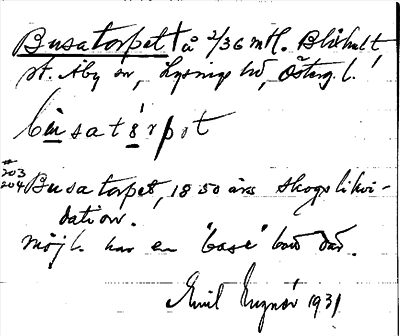 Busatorpet † å 2/36 mtl. Blåhult
st. Åby sn, Lysings hd, Östergl.
bùsatårpət
203
204 Busatorpet, 1850 års skogslikvi-
dation.
Möjl. har en "base" bott där.
Emil 1931